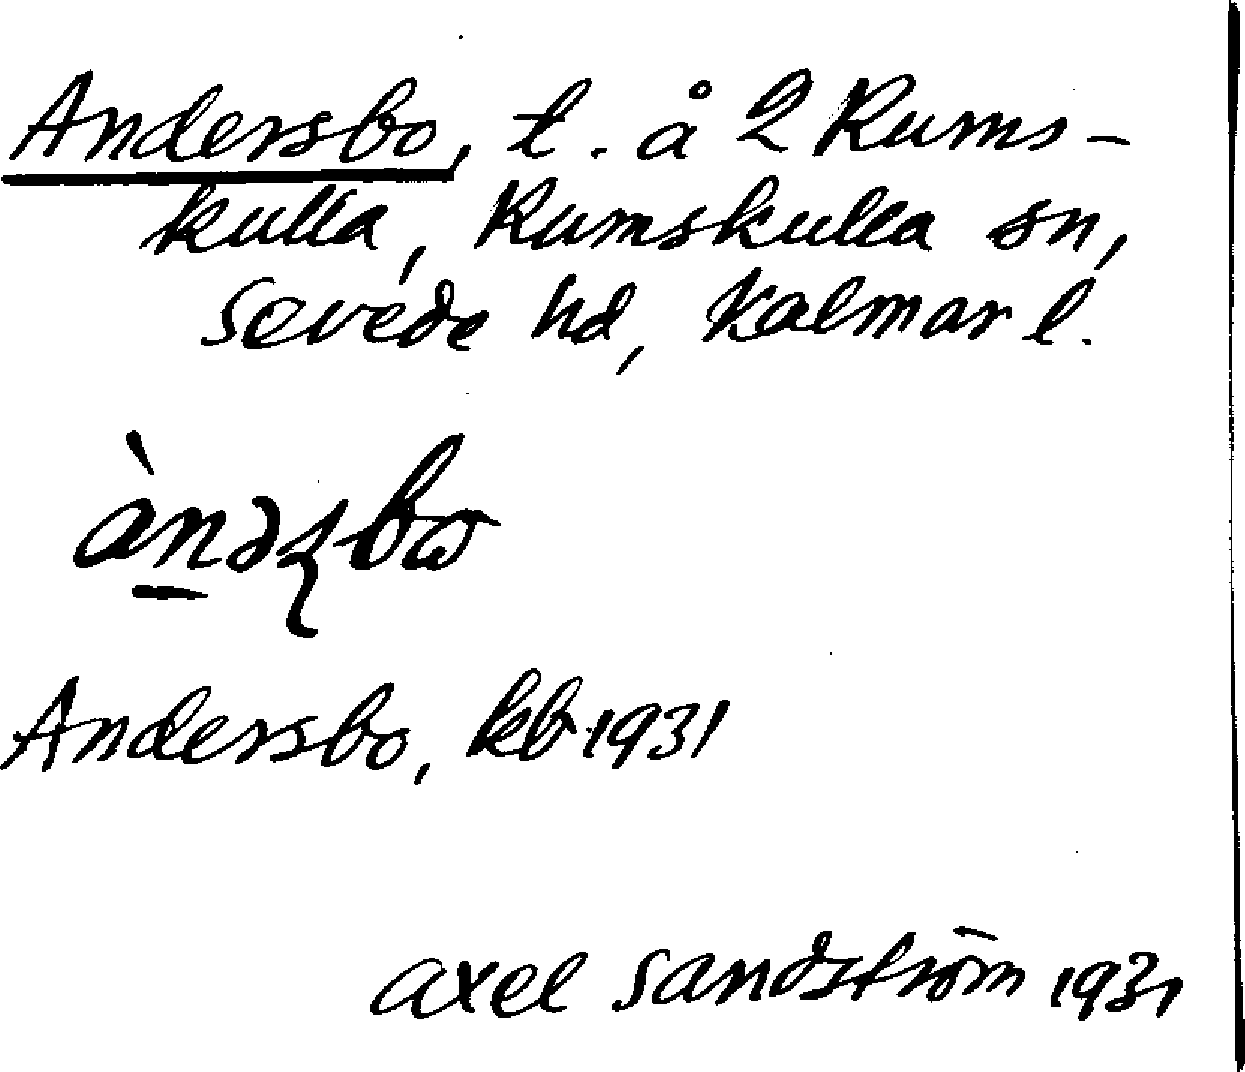 Andersbo, t. å 2 Rums-
kulla, Rumskulla sn,
Sevede hd, Kalmar l.
àn̲əʂbω
Andersbo, kb 1931
Axel Sandström 1931